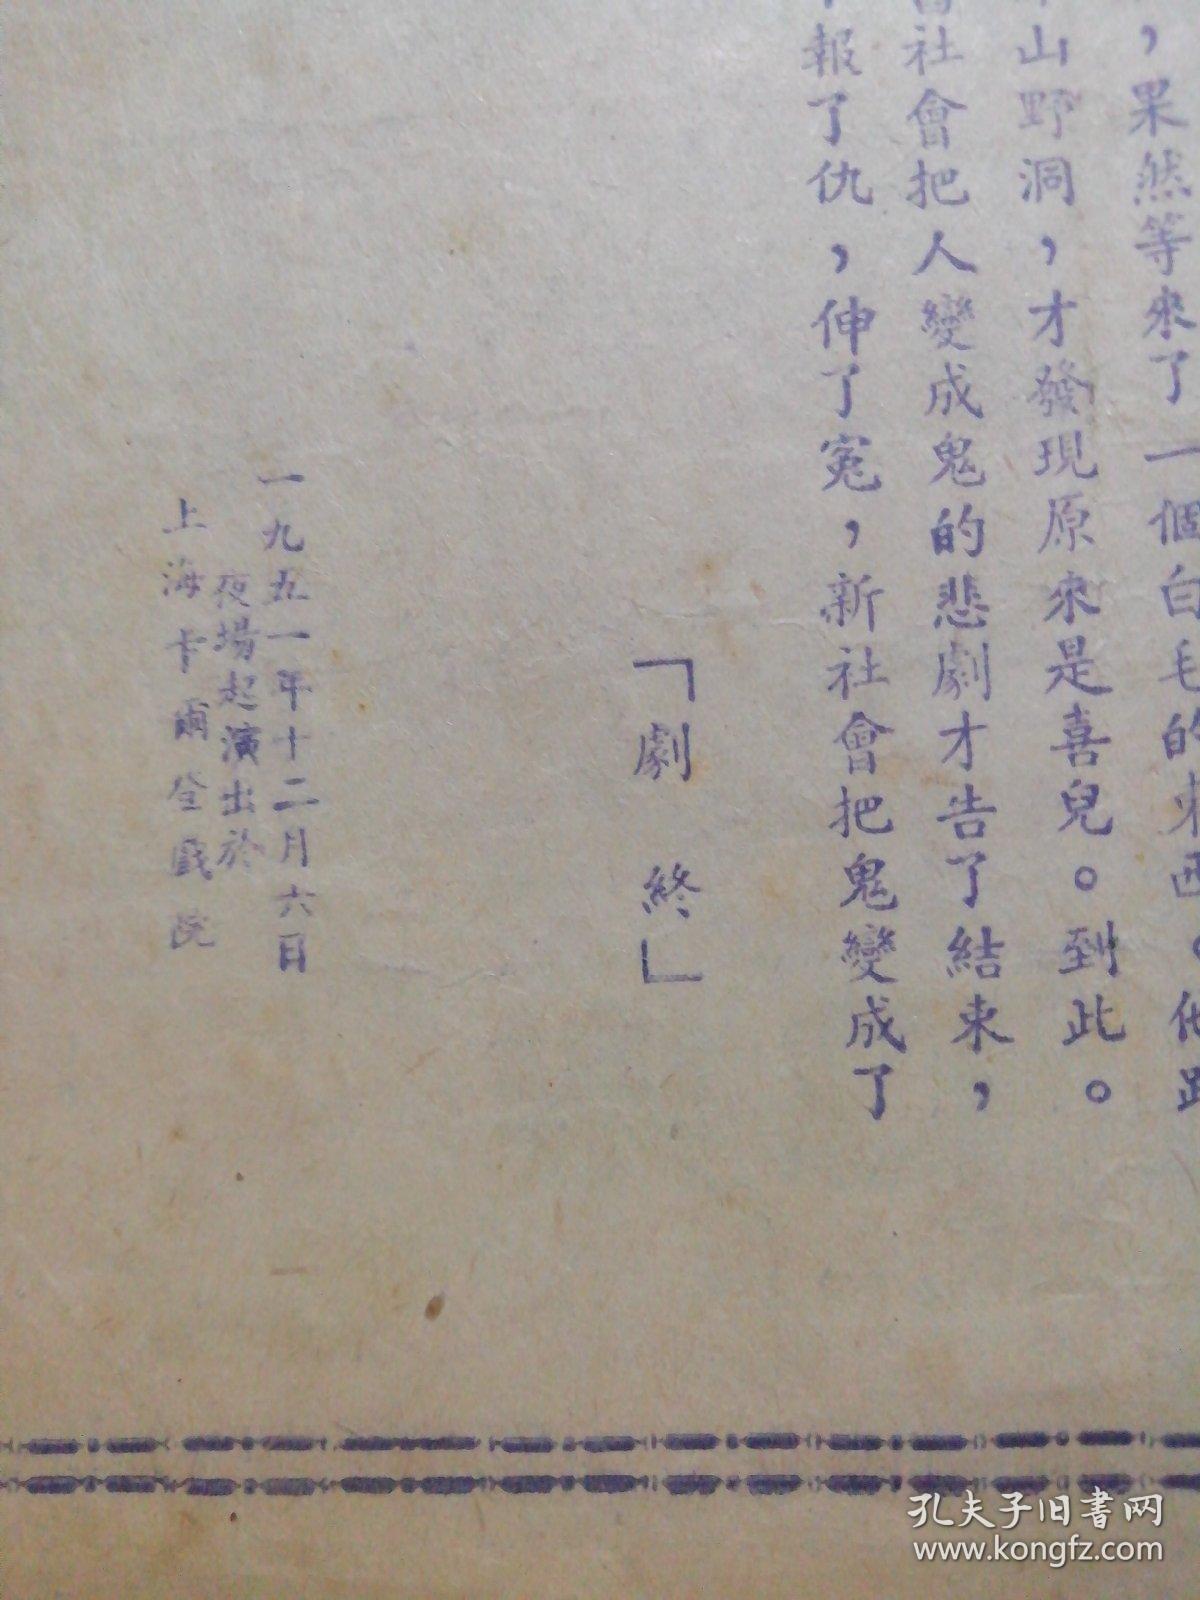 ，果然等來了一個白毛的東西。他
山野洞，才發現原來是喜兒。到此。
社會把人變成鬼的悲劇才告了結束，
報了仇，伸了寃，新社會把鬼變成了
「劇 終」
一九五一年十二月六日
夜場起演出於
上海卡爾登戲院
孔夫子旧書网
www.kongfz.com